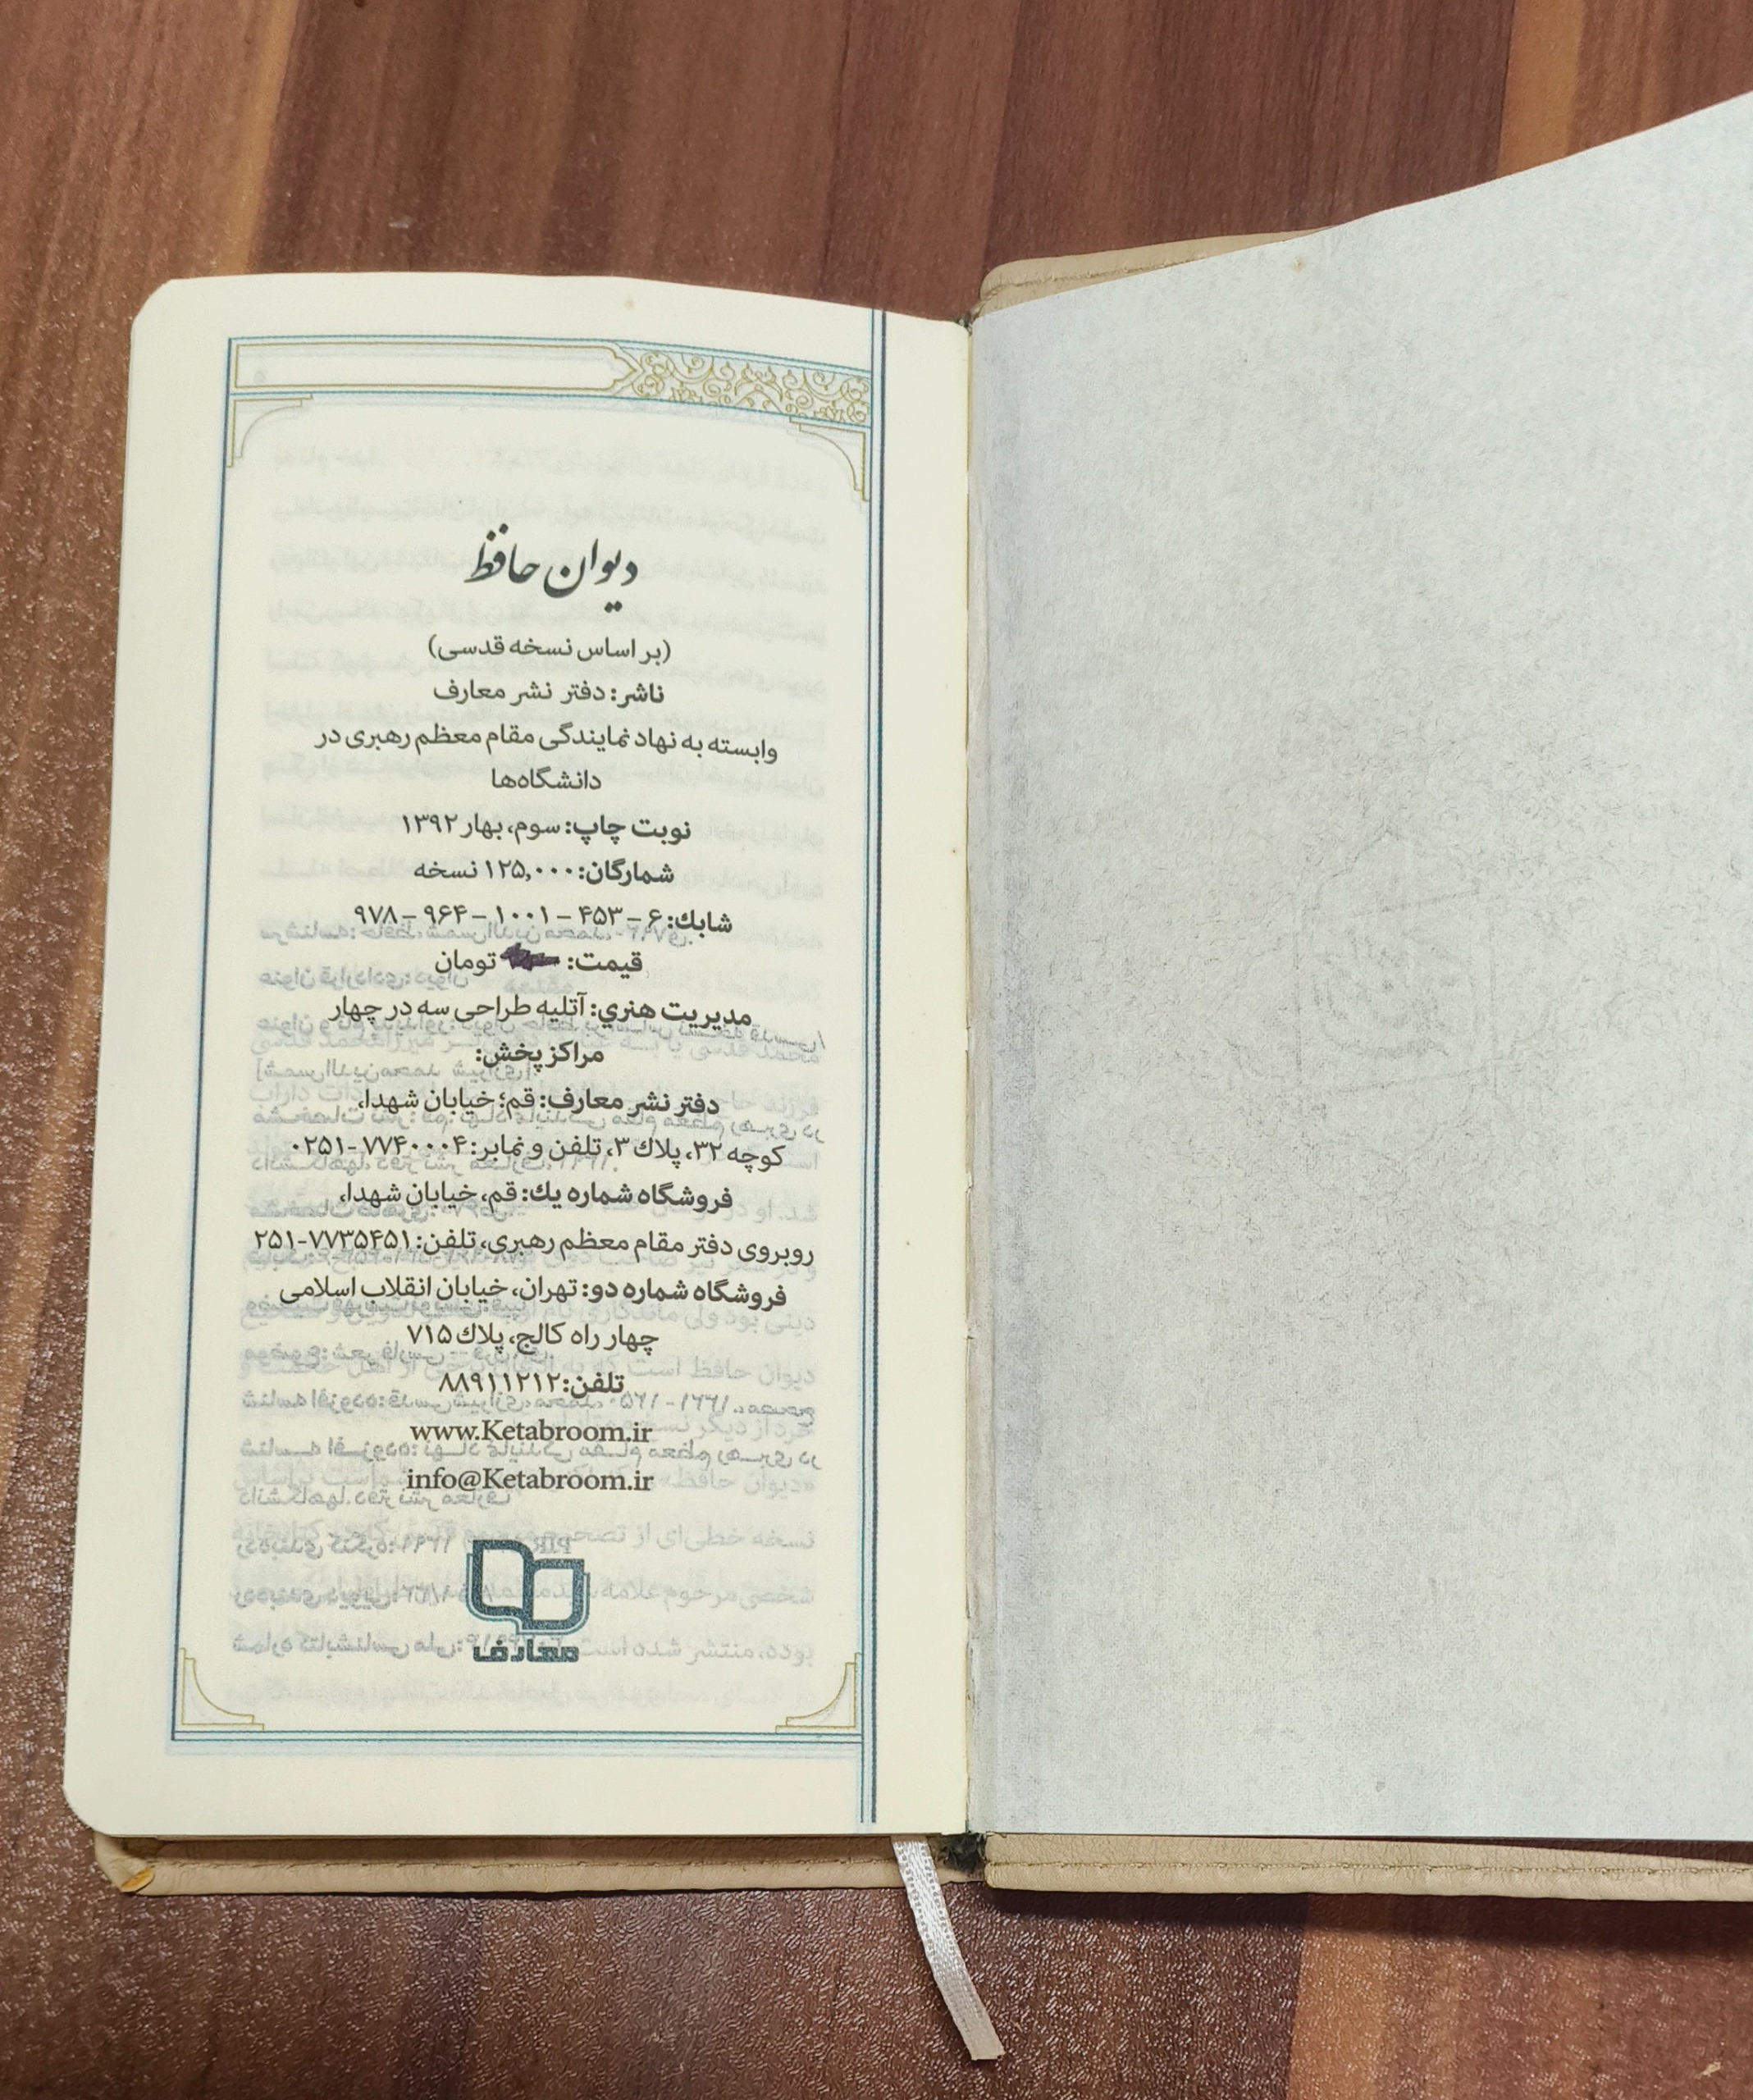 دیوان حافظ
(بر اساس نسخه قدسی)
ناشر: دفتر نشر معارف
وابسته به نهاد نمایندگی مقام معظم رهبری در
دانشگاه‌ها
نوبت چاپ: سوم، بهار ۱۳۹۲
شمارگان: ۱۲۵,۰۰۰ نسخه
شابك: ۶ – ۴۵۳ – ۱۰۰۱ – ۹۶۴ – ۹۷۸
قیمت: تومان
مدیریت هنري: آتلیه طراحی سه در چهار
مراکز پخش:
دفتر نشر معارف: قم؛ خیابان شهدا،
کوچه ۳۲، پلاك ۳، تلفن و نمابر: ۷۷۴۰۰۰۴-۰۲۵۱
فروشگاه شماره یك: قم، خیابان شهدا،
روبروی دفتر مقام معظم رهبری، تلفن: ۷۷۳۵۴۵۱-۲۵۱
فروشگاه شماره دو: تهران، خیابان انقلاب اسلامی
چهار راه کالج، پلاك ۷۱۵
تلفن: ۸۸۹۱۱۲۱۲
www.Ketabroom.ir
info@Ketabroom.ir
معارف